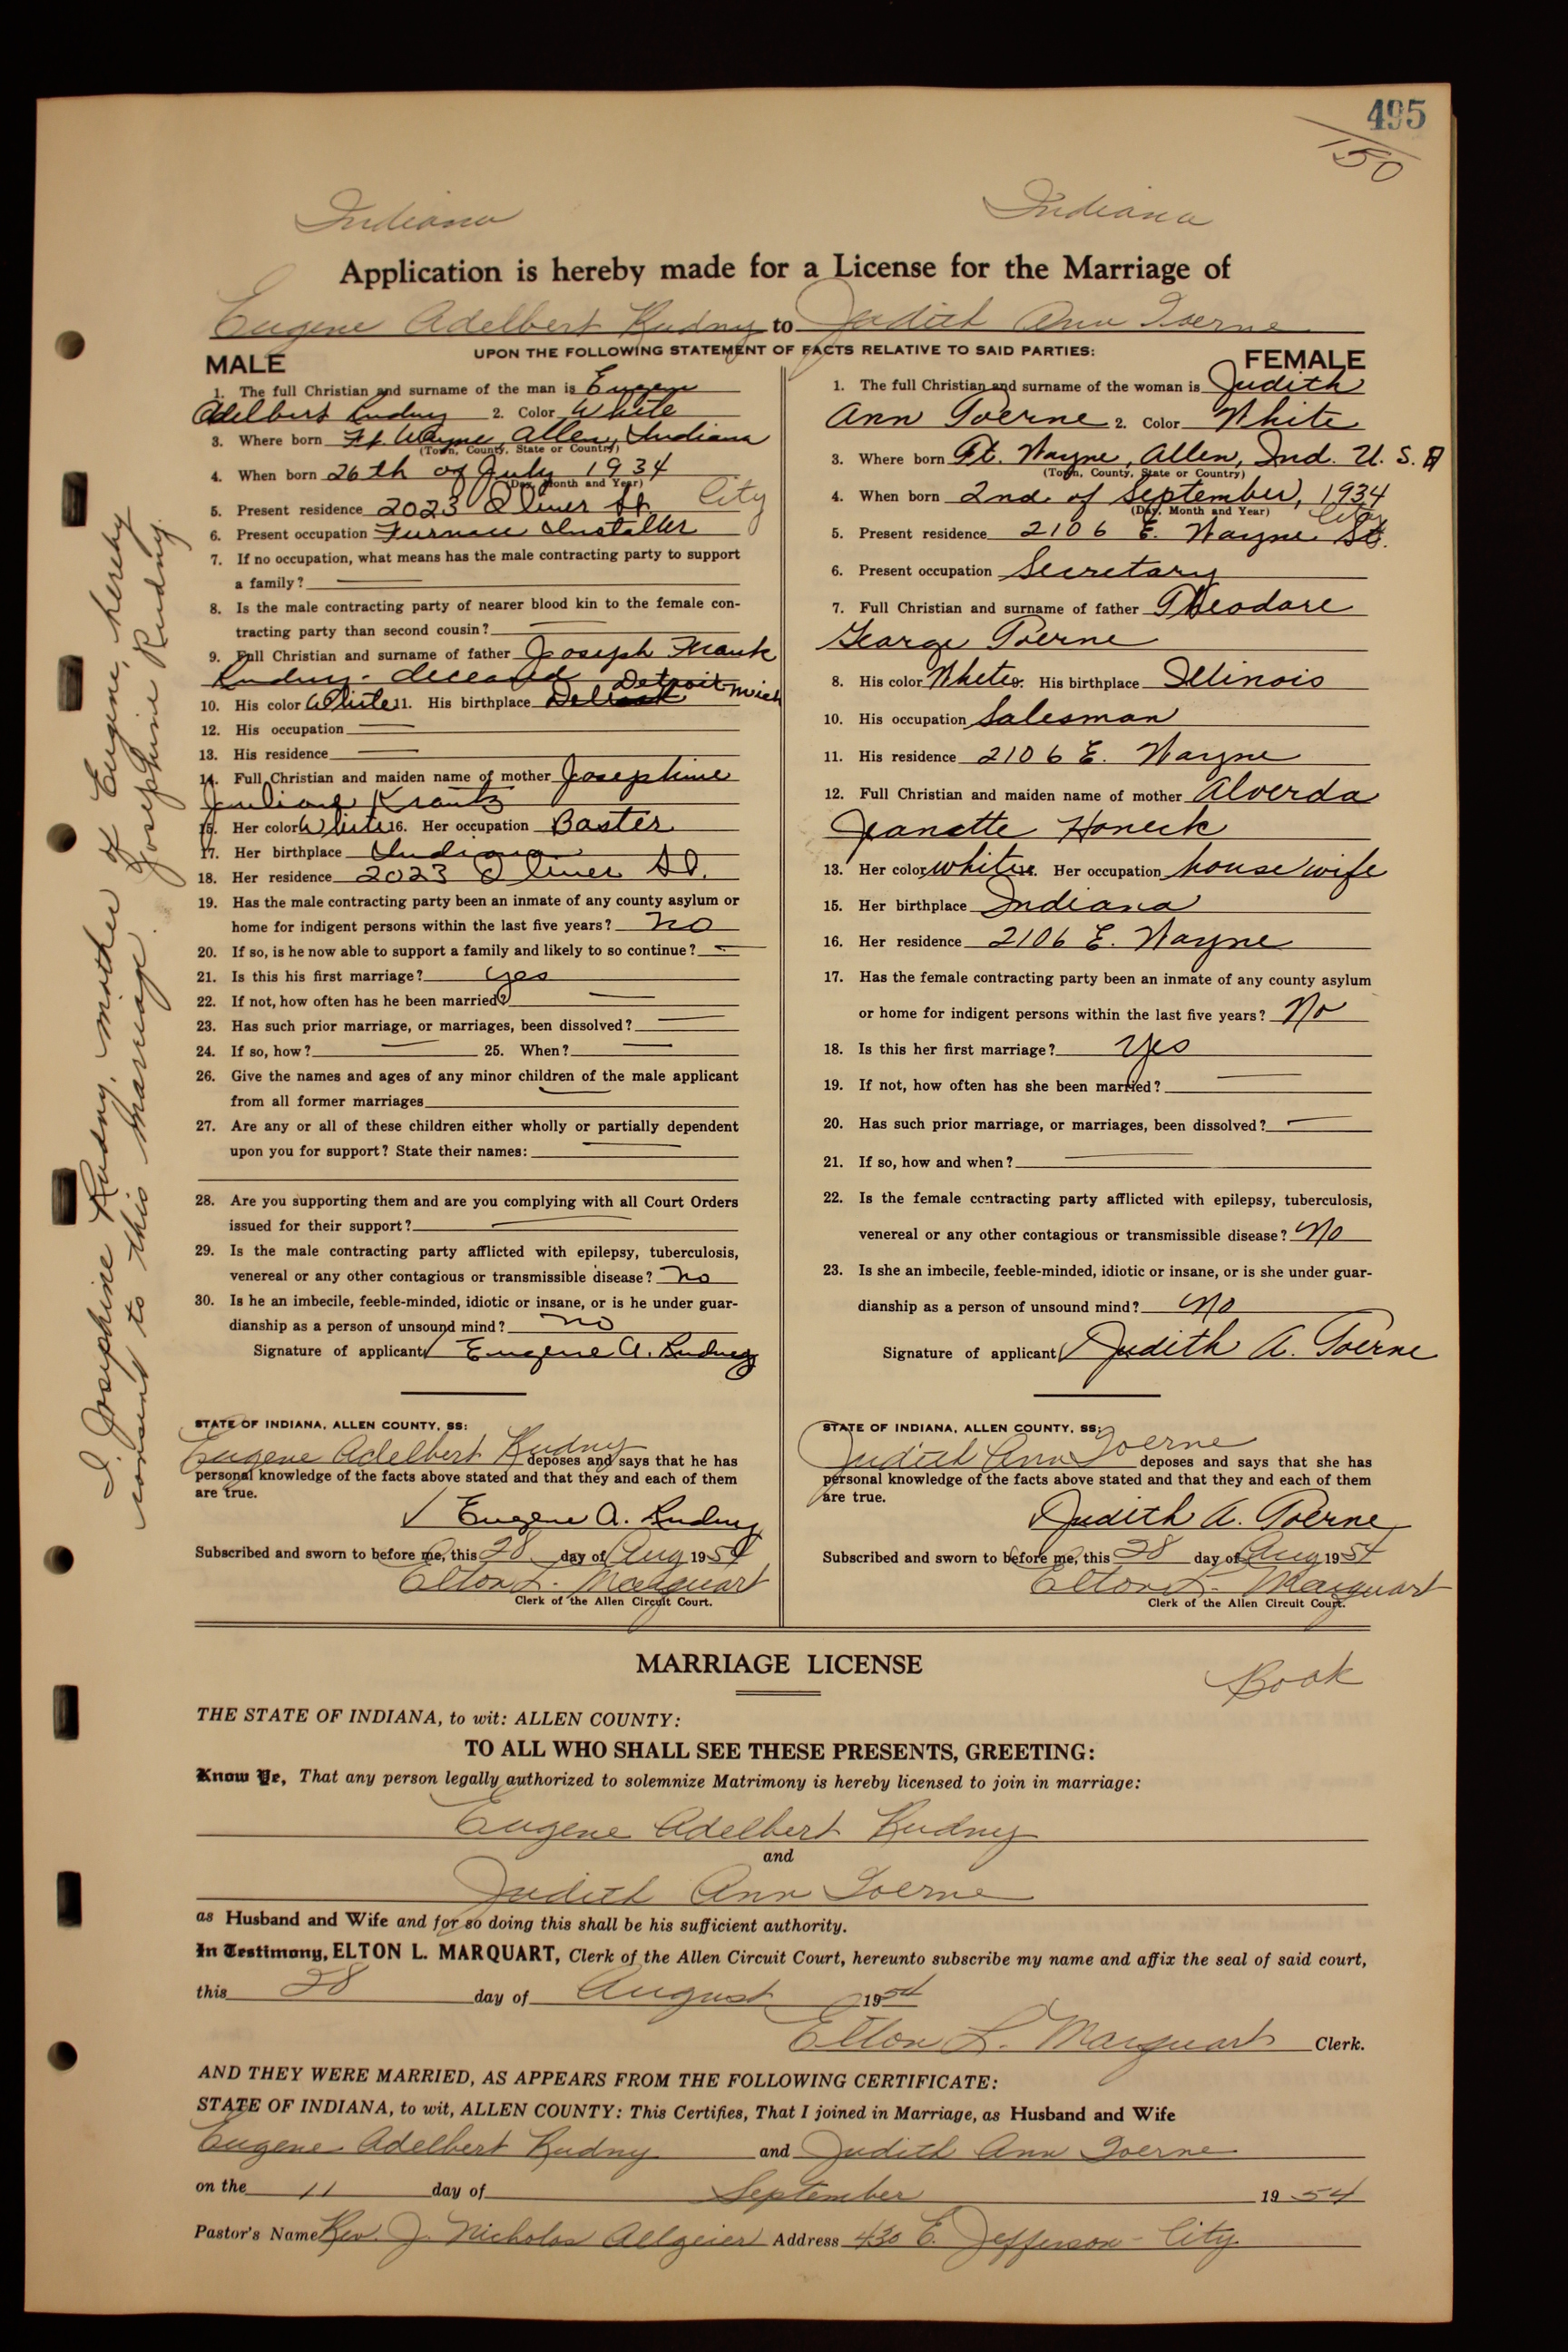 495
150
Indiana Indiana
Application is hereby made for a License for the Marriage of
Eugene Adelbert Rudny to Judith Ann Goerne
UPON THE FOLLOWING STATEMENT OF FACTS RELATIVE TO SAID PARTIES:
MALE
1. The full Christian and surname of the man is Eugene
Adelbert Rudny 2. Color White
3. Where born Ft. Wayne, Allen, Indiana
(Town, County, State or Country)
4. When born 26th of July 1934
(Day, Month and Year)
5. Present residence 2023 Oliver St. City
6. Present occupation Furnace Installer
7. If no occupation, what means has the male contracting party to support
a family?
8. Is the male contracting party of nearer blood kin to the female con-
tracting party than second cousin?
9. Full Christian and surname of father Joseph Frank
Rudny - deceased
10. His color White 11. His birthplace Detroit Mich
12. His occupation
13. His residence
14. Full Christian and maiden name of mother Josephine
Krantz
15. Her color White 16. Her occupation Baster
17. Her birthplace Indiana
18. Her residence 2023 Oliver St.
19. Has the male contracting party been an inmate of any county asylum or
home for indigent persons within the last five years? no
20. If so, is he now able to support a family and likely to so continue?
21. Is this his first marriage? yes
22. If not, how often has he been married?
23. Has such prior marriage, or marriages, been dissolved?
24. If so, how? 25. When?
26. Give the names and ages of any minor children of the male applicant
from all former marriages
27. Are any or all of these children either wholly or partially dependent
upon you for support? State their names:
28. Are you supporting them and are you complying with all Court Orders
issued for their support?
29. Is the male contracting party afflicted with epilepsy, tuberculosis,
venereal or any other contagious or transmissible disease? no
30. Is he an imbecile, feeble-minded, idiotic or insane, or is he under guar-
dianship as a person of unsound mind? no
Signature of applicant Eugene A. Rudny
STATE OF INDIANA, ALLEN COUNTY, SS:
Eugene Adelbert Rudny deposes and says that he has
personal knowledge of the facts above stated and that they and each of them
are true.
Eugene A. Rudny
Subscribed and sworn to before me, this 28 day of Aug 1954
Elton L. Marquart
Clerk of the Allen Circuit Court.
I, Josephine Rudny, mother of Eugene, hereby
consent to this marriage. Josephine Rudny.
FEMALE
1. The full Christian and surname of the woman is Judith
Ann Goerne 2. Color White
3. Where born Ft. Wayne, Allen, Ind. U. S. A
(Town, County, State or Country)
4. When born 2nd. of September, 1934
(Day, Month and Year)
5. Present residence 2106 E. Wayne St. City
6. Present occupation Secretary
7. Full Christian and surname of father Theodore
George Goerne
8. His color White 9. His birthplace Illinois
10. His occupation Salesman
11. His residence 2106 E. Wayne
12. Full Christian and maiden name of mother Alverda
Jeanette Honeck
13. Her color white 14. Her occupation housewife
15. Her birthplace Indiana
16. Her residence 2106 E. Wayne
17. Has the female contracting party been an inmate of any county asylum
or home for indigent persons within the last five years? No
18. Is this her first marriage? yes
19. If not, how often has she been married?
20. Has such prior marriage, or marriages, been dissolved?
21. If so, how and when?
22. Is the female contracting party afflicted with epilepsy, tuberculosis,
venereal or any other contagious or transmissible disease? No
23. Is she an imbecile, feeble-minded, idiotic or insane, or is she under guar-
dianship as a person of unsound mind? No
Signature of applicant Judith A. Goerne
STATE OF INDIANA, ALLEN COUNTY, SS:
Judith Ann Goerne deposes and says that she has
personal knowledge of the facts above stated and that they and each of them
are true.
Judith A. Goerne
Subscribed and sworn to before me, this 28 day of Aug 1954
Elton L. Marquart
Clerk of the Allen Circuit Court.
MARRIAGE LICENSE
Book
THE STATE OF INDIANA, to wit: ALLEN COUNTY:
TO ALL WHO SHALL SEE THESE PRESENTS, GREETING:
Know Ye, That any person legally authorized to solemnize Matrimony is hereby licensed to join in marriage:
Eugene Adelbert Rudny
and
Judith Ann Goerne
as Husband and Wife and for so doing this shall be his sufficient authority.
In Testimony, ELTON L. MARQUART, Clerk of the Allen Circuit Court, hereunto subscribe my name and affix the seal of said court,
this 28 day of August 1954
Elton L. Marquart Clerk.
AND THEY WERE MARRIED, AS APPEARS FROM THE FOLLOWING CERTIFICATE:
STATE OF INDIANA, to wit, ALLEN COUNTY: This Certifies, That I joined in Marriage, as Husband and Wife
Eugene Adelbert Rudny and Judith Ann Goerne
on the 11 day of September 1954
Pastor's Name Rev. J. Nicholas Allgeier Address 430 E. Jefferson - City